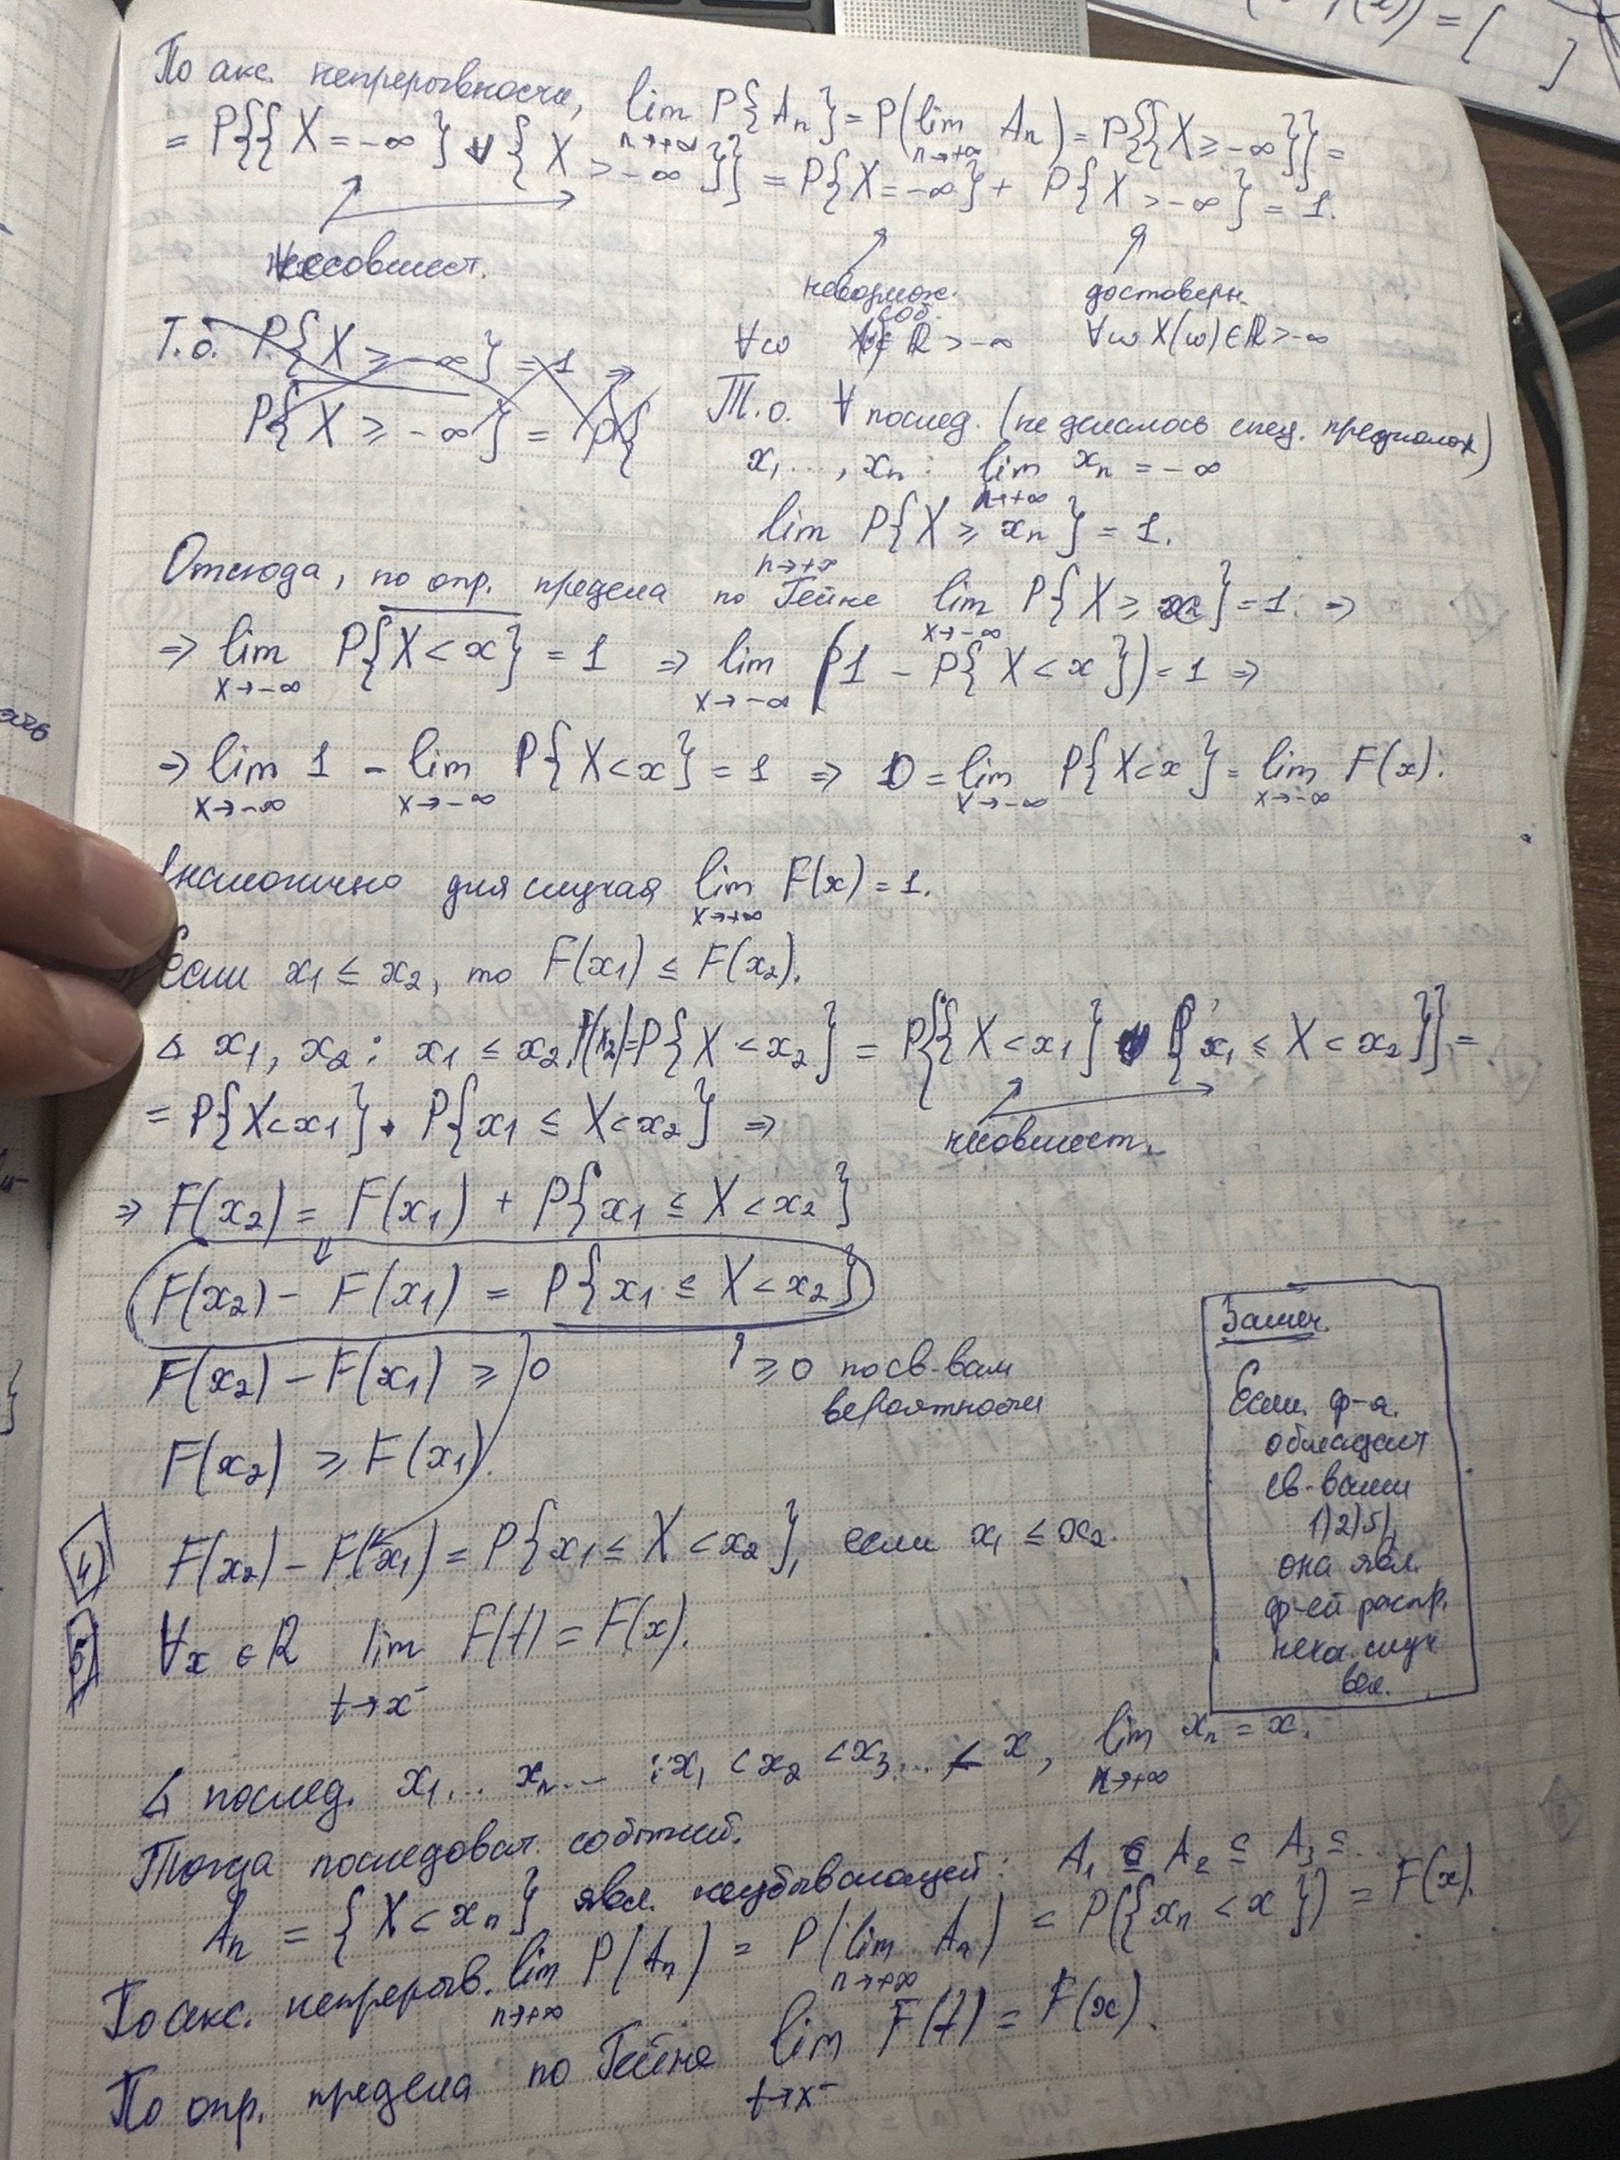 По акс. непрерывности, lim_{n→+∞} P{A_n} = P(lim_{n→+∞} A_n) = P{{X ≥ -∞}} =
= P{{X = -∞} + {X > -∞}} = P{X = -∞} + P{X > -∞} = 1.
несовмест.
невозмож. соб.
достоверн.
∀ω X(ω) ∈ ℝ > -∞
∀ω X(ω) ∈ ℝ > -∞
Т.о. P{X ≥ -∞} = 1 ⇒
P{X ≥ -∞} = P{
Т.о. ∀ послед. (не делалось спец. предполож)
x₁ ..., x_n : lim_{n→+∞} x_n = -∞
lim_{n→+∞} P{X ≥ x_n} = 1.
Отсюда, по опр. предела по Гейне lim_{x→-∞} P{X ≥ x} = 1. ⇒
⇒ lim_{x→-∞} P{\overline{X < x}} = 1 ⇒ lim_{x→-∞} (1 - P{X < x}) = 1 ⇒
⇒ lim_{x→-∞} 1 - lim_{x→-∞} P{X < x} = 1 ⇒ 0 = lim_{x→-∞} P{X < x} = lim_{x→-∞} F(x).
Аналогично для случая lim_{x→+∞} F(x) = 1.
Если x₁ ≤ x₂, то F(x₁) ≤ F(x₂).
∆ x₁, x₂ : x₁ ≤ x₂, F(x₂) = P{X < x₂} = P{{X < x₁} + {x₁ ≤ X < x₂}} =
= P{X < x₁} + P{x₁ ≤ X < x₂} ⇒
несовмест.
⇒ F(x₂) = F(x₁) + P{x₁ ≤ X < x₂}
⇓
F(x₂) - F(x₁) = P{x₁ ≤ X < x₂}
F(x₂) - F(x₁) ≥ 0
≥ 0 по св-вам
вероятности
F(x₂) ≥ F(x₁).
Замеч.
Если ф-я.
обладает
св-вами
1)2)5),
она явл.
ф-ей распр.
нек. случ
вел.
4) F(x₂) - F(x₁) = P{x₁ ≤ X < x₂}, если x₁ ≤ x₂.
5) ∀x ∈ ℝ lim_{t→x⁻} F(t) = F(x).
∆ послед. x₁ ... x_n ... : x₁ < x₂ < x₃ ... < x, lim_{n→+∞} x_n = x.
Тогда последоват. событий.
A_n = {X < x_n} явл. неубывающей: A₁ ⊆ A₂ ⊆ A₃ ⊆ ...
По акс. непрерыв. lim_{n→+∞} P(A_n) = P(lim_{n→+∞} A_n) = P({x_n < x}) = F(x).
По опр. предела по Гейне lim_{t→x⁻} F(t) = F(x).